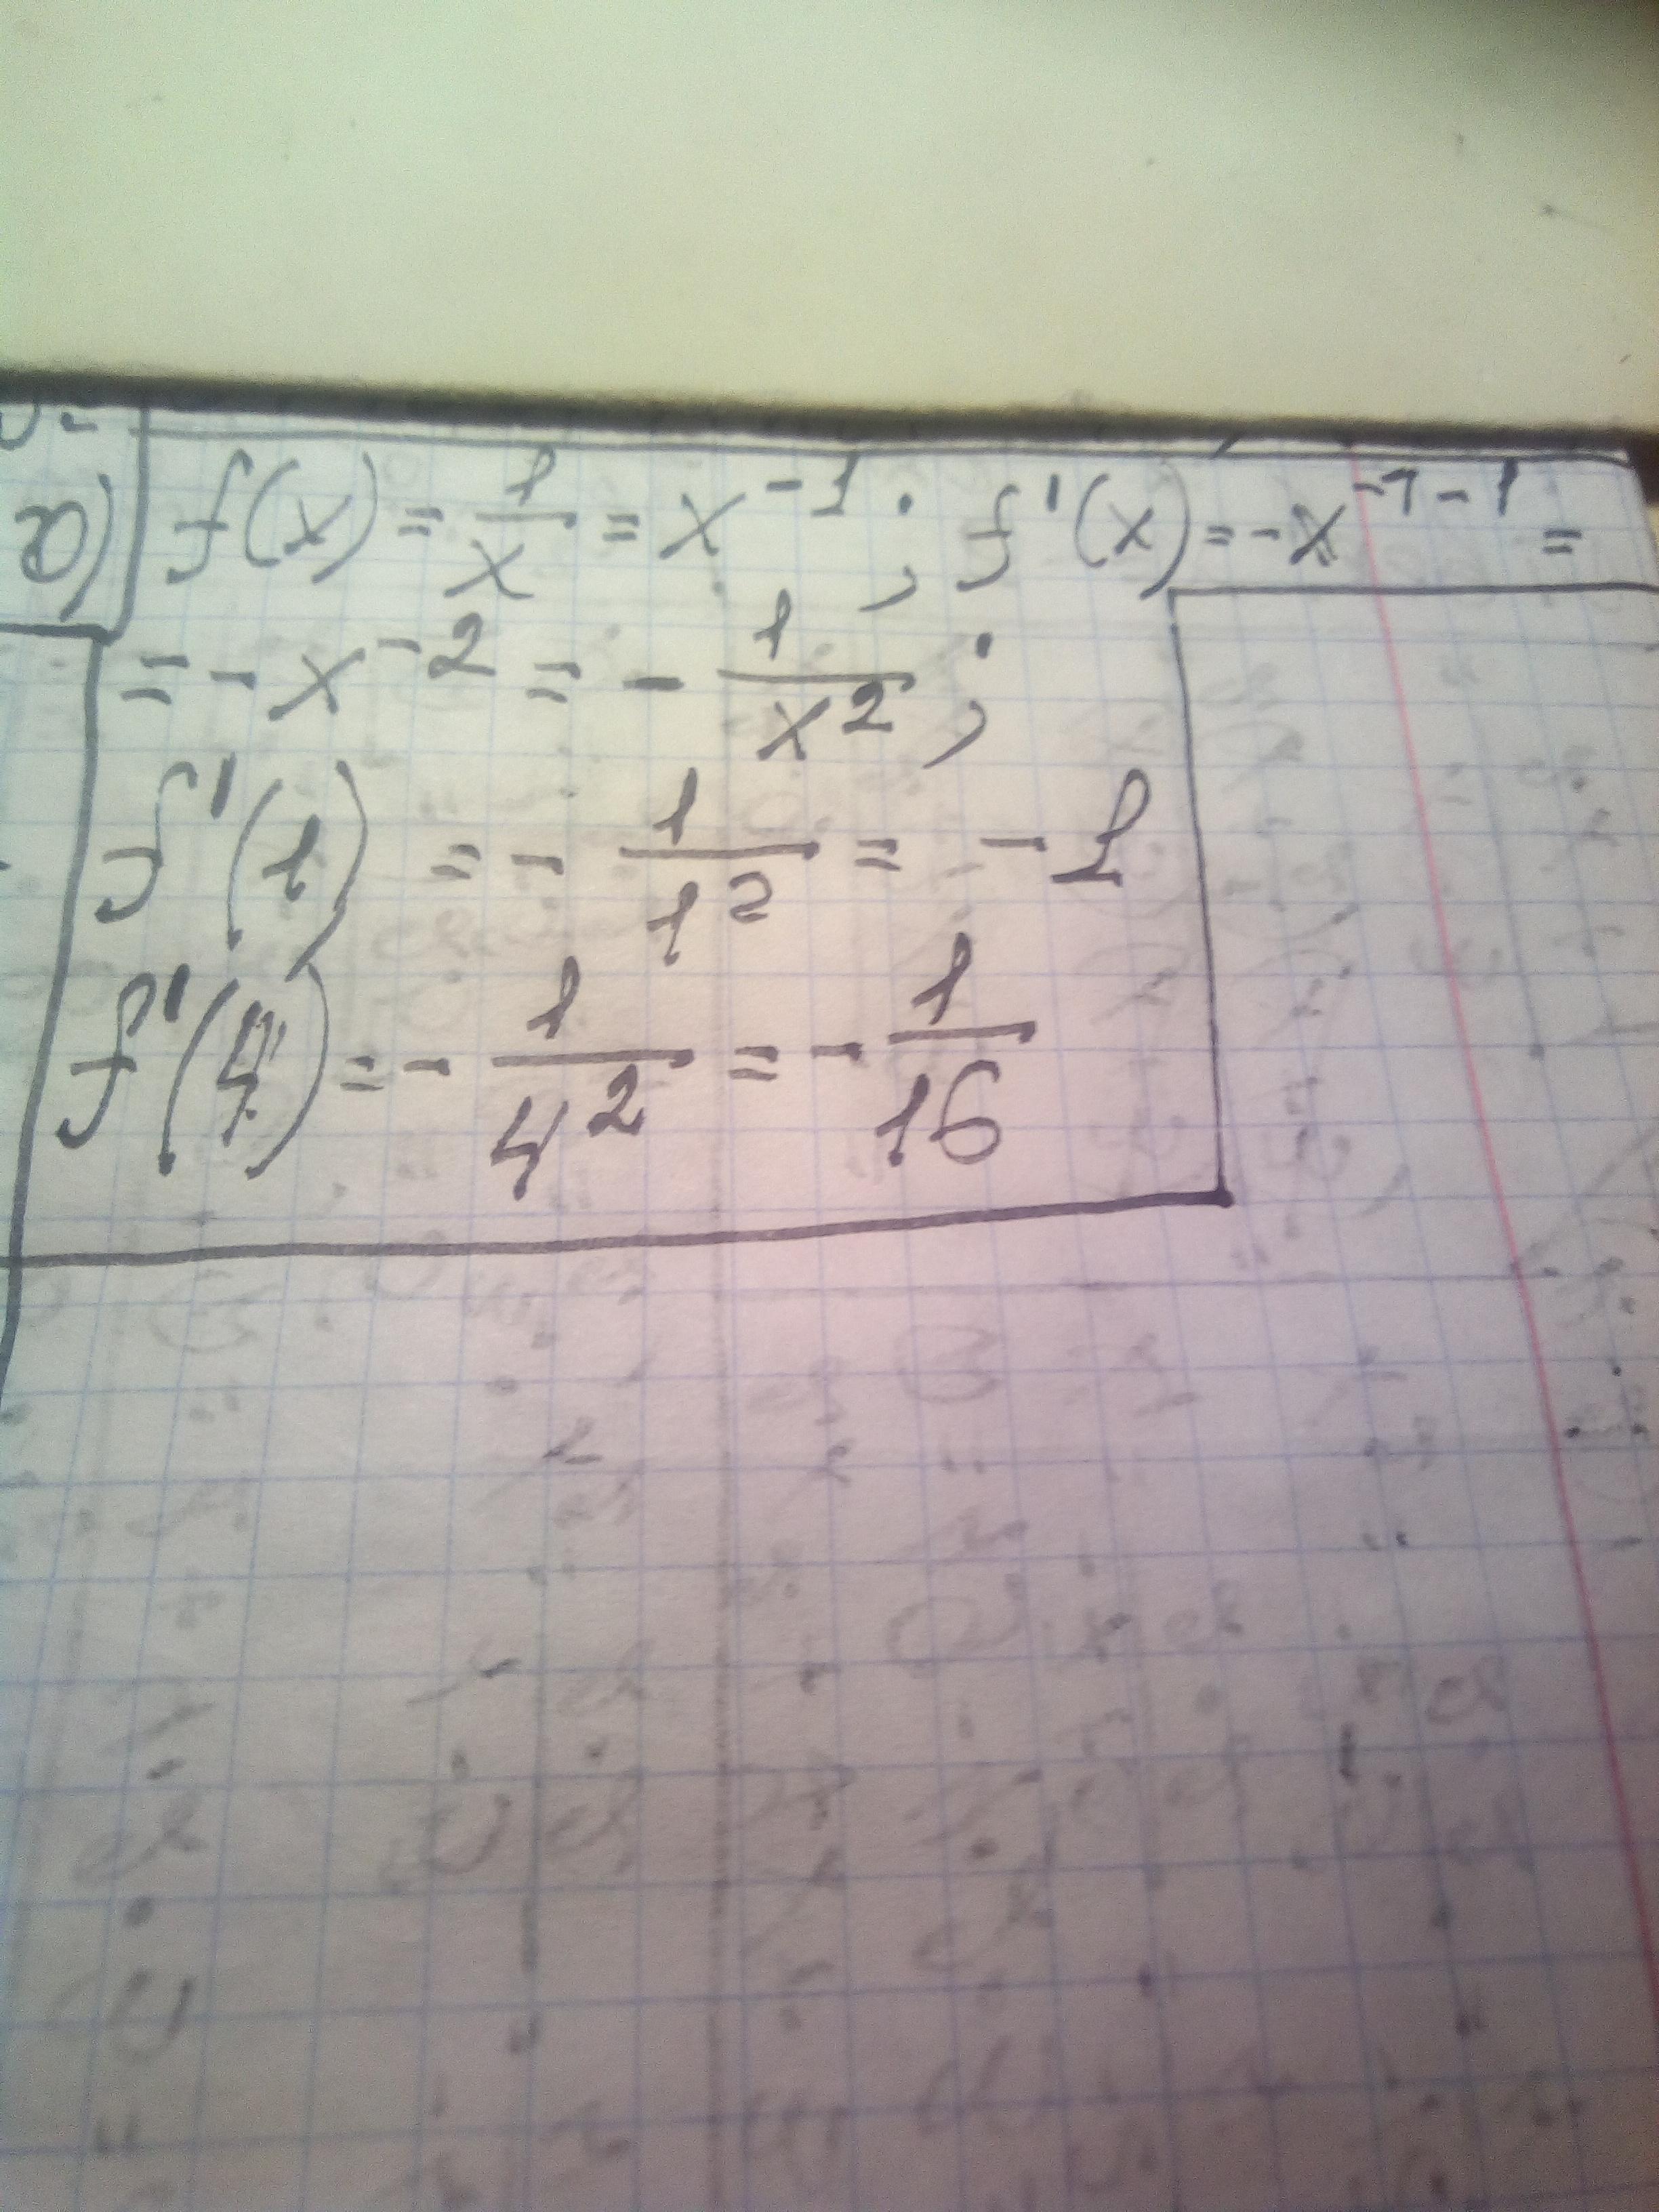 а) f(x) = 1/x = x^-1; f'(x) = -x^-1-1 =
= -x^-2 = - 1/x^2;
f'(1) = - 1/1^2 = -1
f'(4) = - 1/4^2 = - 1/16